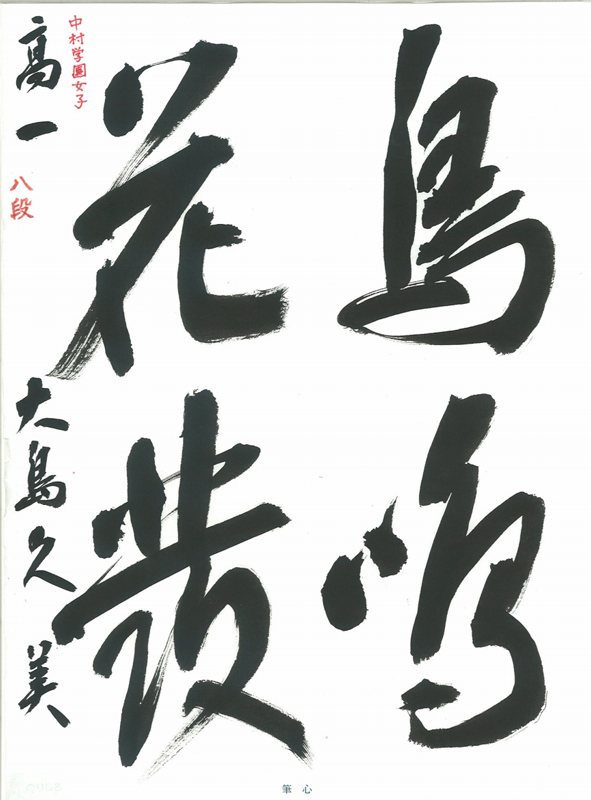 鳥鳴
花發
中村学園女子
高一 八段 大島久美
筆心